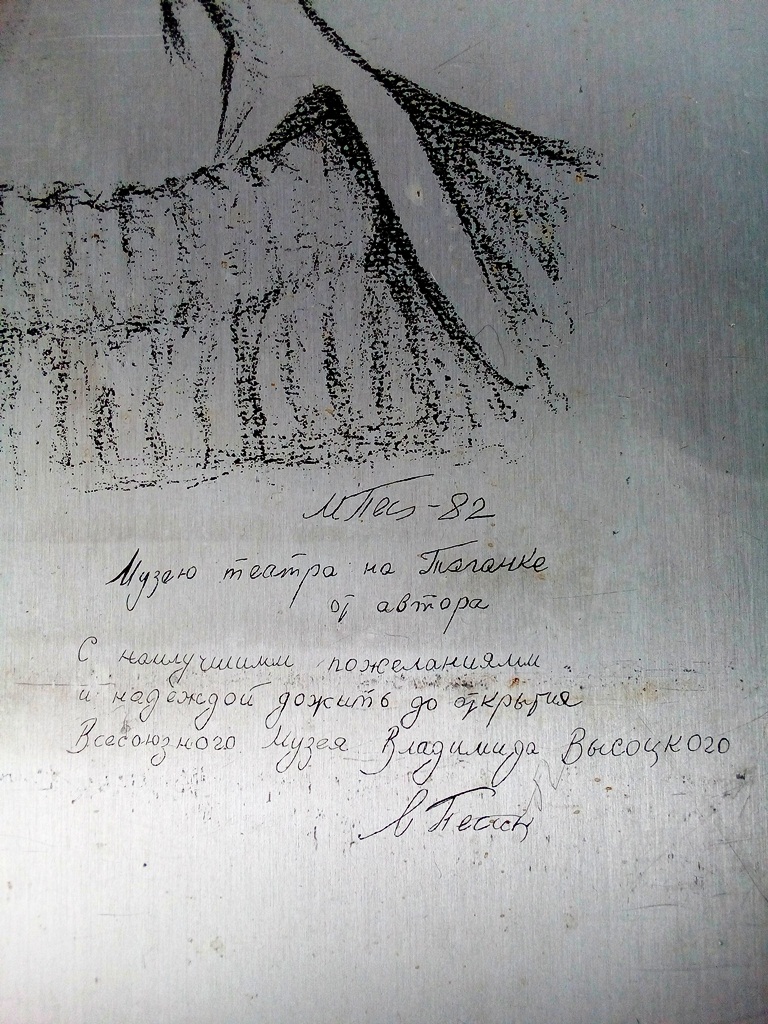 -82
Музею театра на Таганке
от автора
С наилучшими пожеланиями
и надеждой дожить до открытия
Всесоюзного Музея Владимира Высоцкого